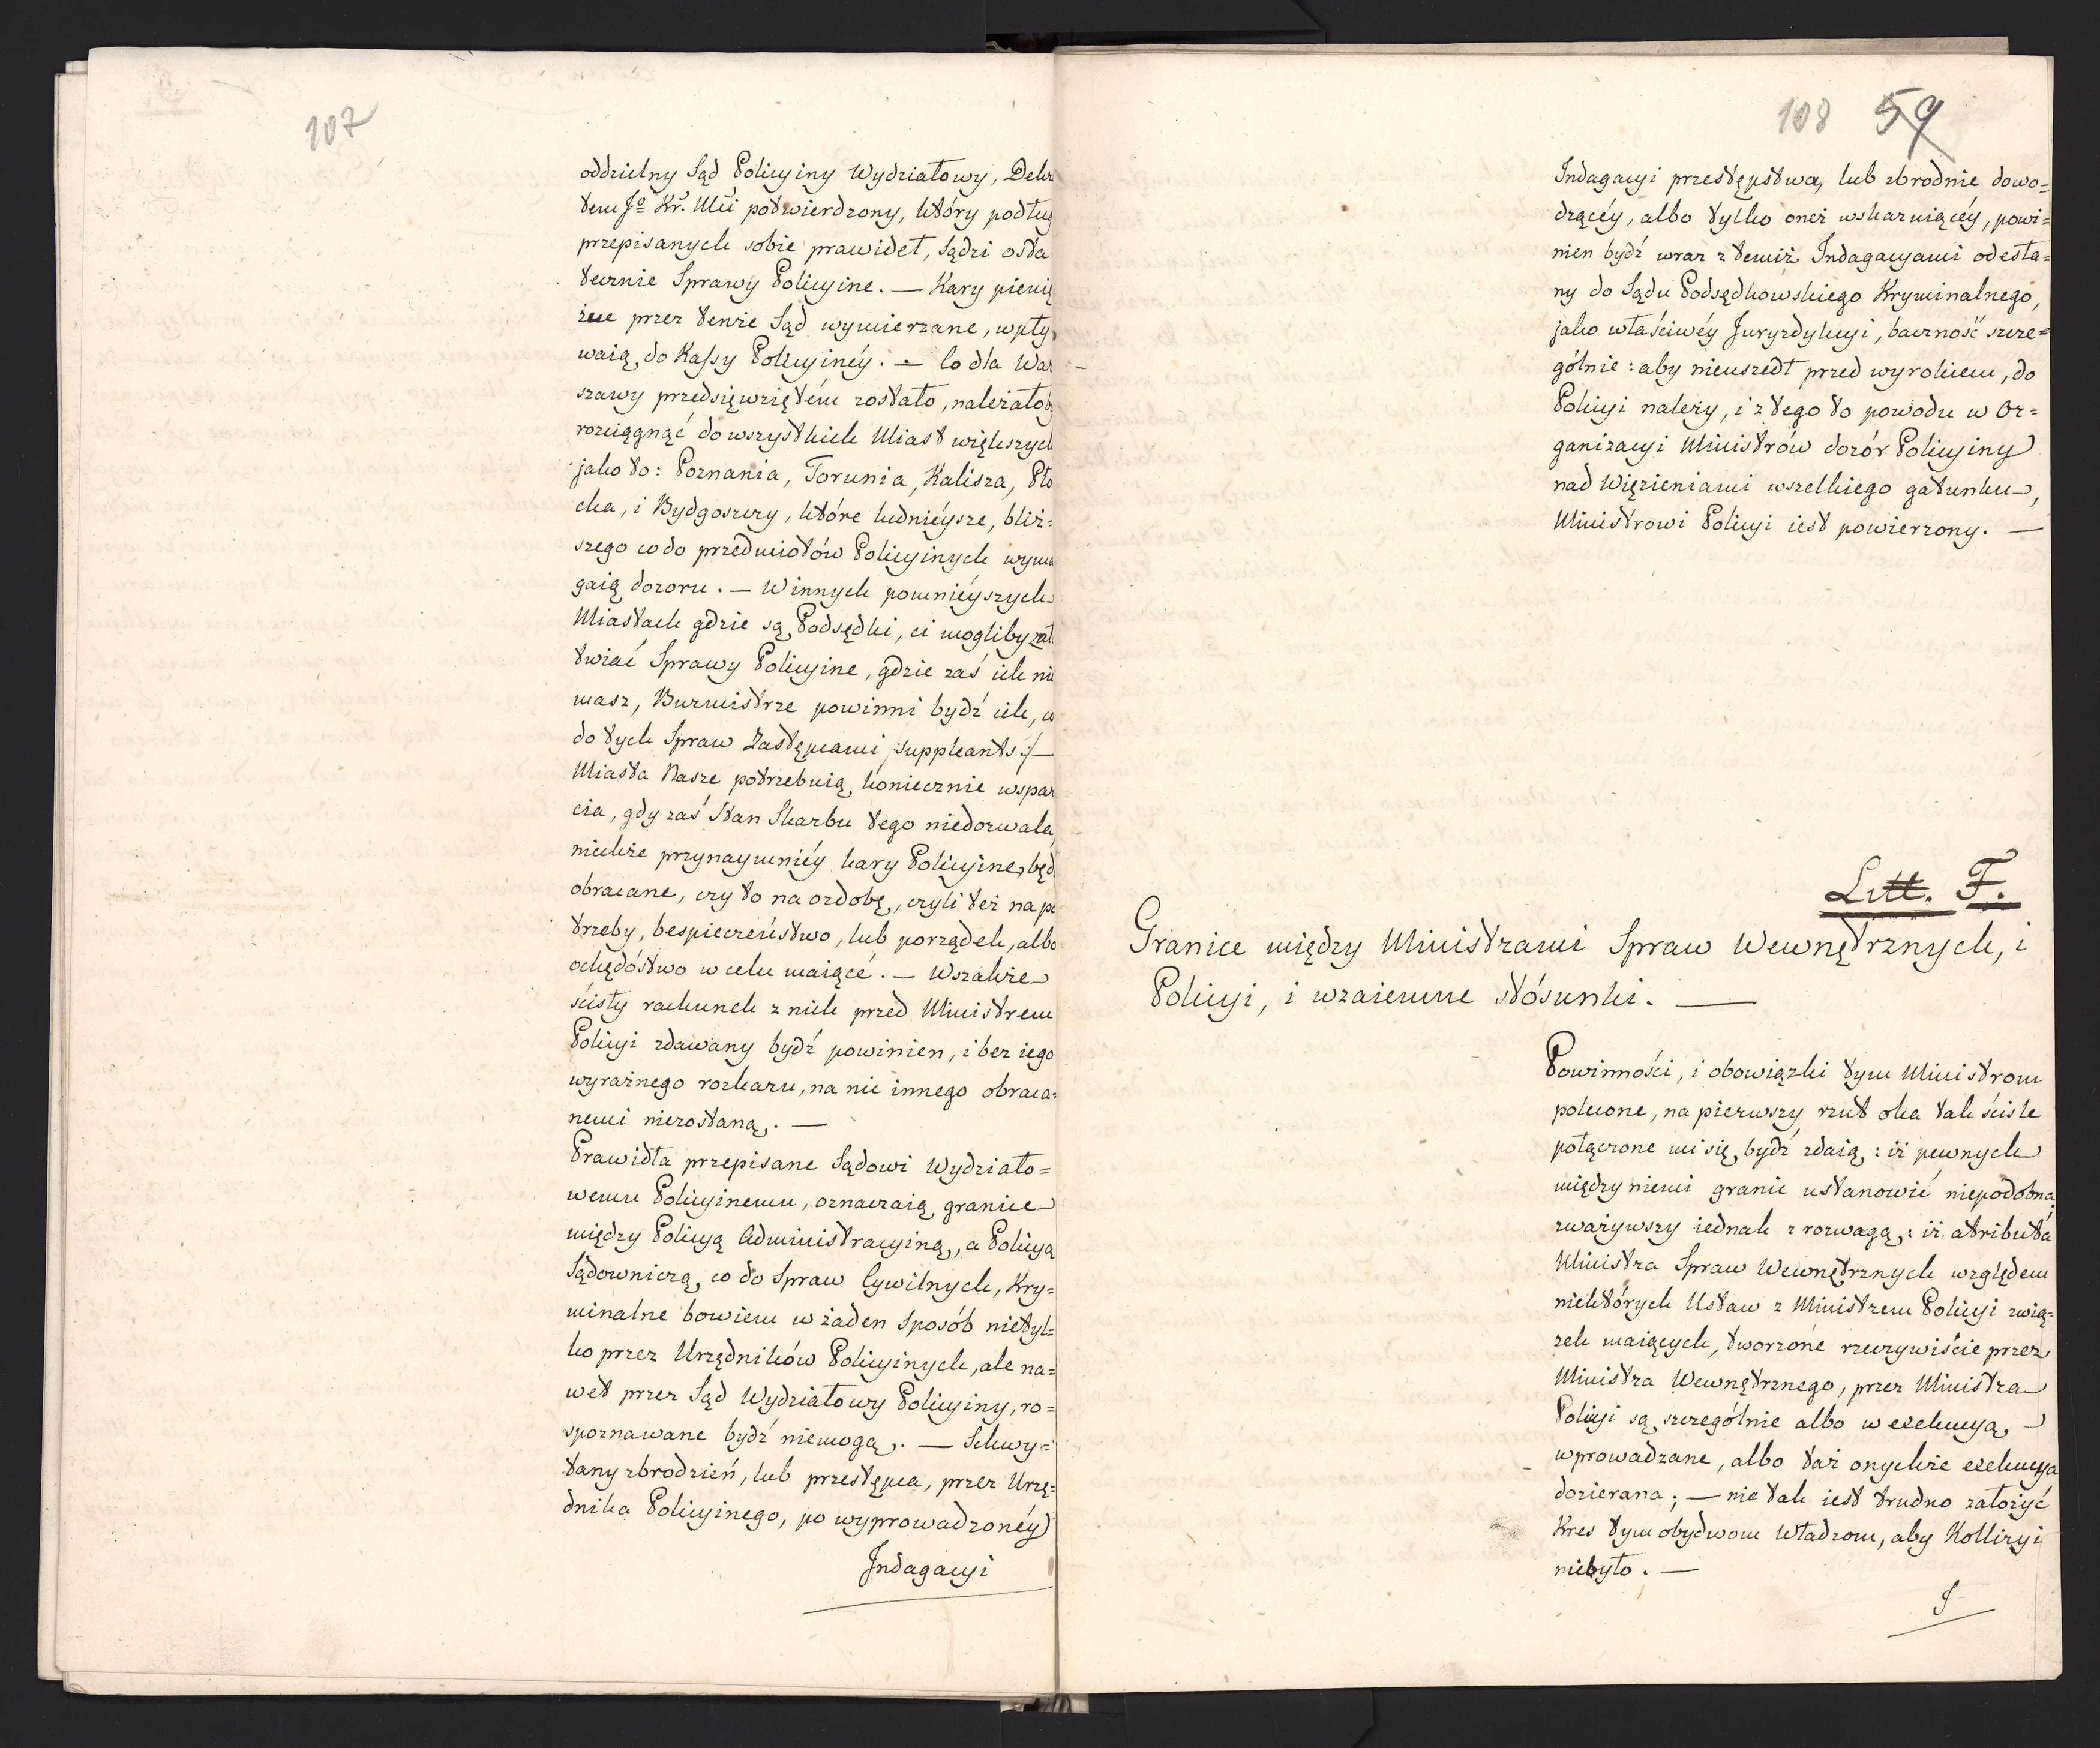 107
oddzielny Sąd Policyiny Wydziałowy, Dekre
tem Jº Kr. Mci potwierdzony, który podług
przepisanych sobie prawideł, Sądzi osta
tecznie Sprawy Policyine. — Kary pienię
żne przez tenże Sąd wymierzane, wpły
waią, do Kassy Policyinéy. — Co dla War
szawy przedsięwziętém zostało, należałob
rozciągnąć do wszystkich Miast większych
jako to: Poznania, Torunia, Kalisza, Pło
cka, i Bydgoszczy, które ludniéysze, bliż=
szego co do przedmiotów Policyinych wyma
gaią dozoru. — W innych pomniéyszych
Miastach gdzie są, Podsędki, ci mogliby zał
twiać Sprawy Policyine, gdzie zaś ich nie
masz, Burmistrze powinni bydź ich, co
do tych Spraw Zastępcami /suppleants:/ —
Miasta Nasze potrzebuią, koniecznie wspar
cia, gdy zaś Stan Skarbu tego niedozwala
niechże przynaymniéy kary Policyine, będ
obracane, czy to na ozdobę, czyli też na po
trzeby, bespieczeństwo, lub porządek, albo
ochędóstwo w celu maiącé. — Wszakże
ścisły rachunek z nich przed Ministrem
Policyi zdawany bydź powinien, i bez iego
wyraźnego rozkazu, na nic innego obraca=
nemi niezostaną. —
Prawidła przepisane Sądowi Wydziało=
wemu Policyinemu, oznaczaią, granice
między Policyą Administracyiną, a Policyą
Sądowniczą, co do Spraw Cywilnych, Kry=
minalne bowiem w żaden sposób nietyl=
ko przez Urzędników Policyinych, ale na=
wet przez Sąd Wydziałowy Policyiny, ro=
spoznawane bydź niemogą. — Schwy=
tany zbrodzień, lub przestępca, przez Urzę=
dnika Policyinego, po wyprowadzonéy
Indagacyi
108 59
Indagacyi przestępstwa, lub zbrodnie dowo=
dzącéy, albo tylko oneż wskazuiącéy, powi=
nien bydź wraz z temiż Indagacyami odesła=
ny do Sądu Podsędkowskiego Kryminalnego,
jako właściwéy Juryzdykcyi, baczność szcze=
gólnie: aby nieuszedł przed wyrokiem, do
Policyi należy, i z tego to powodu w Or=
ganizacyi Ministrów dozór Policyiny
nad Więzieniami wszelkiego gatunku,
Ministrowi Policyi iest powierzony. —
Litt. F.
Granice między Ministrami Spraw Wewnętrznych, i
Policyi, i wzaiemne stósunki. —
Powinności, i obowiązki tym Ministrom
polecone, na pierwszy rzut oka tak ściśle
połączone mi się, bydź zdaią,: iż pewnych
między niemi granic ustanowić niepodobna
zważywszy iednak z rozwagą,: iż atributa
Ministra Spraw Wewnętrznych względem
niektórych Ustaw z Ministrem Policyi zwią=
zek maiących, tworzone rzeczywiście przez
Ministra Wewnętrznego, przez Ministra
Policyi są, szczególnie albo w exekucyą,
wprowadzane, albo taż onychże exekucya
dozierana; — nie tak iest trudno założyć
Kres tym obydwom Władzom, aby Kollizyi
niebyło. —
J